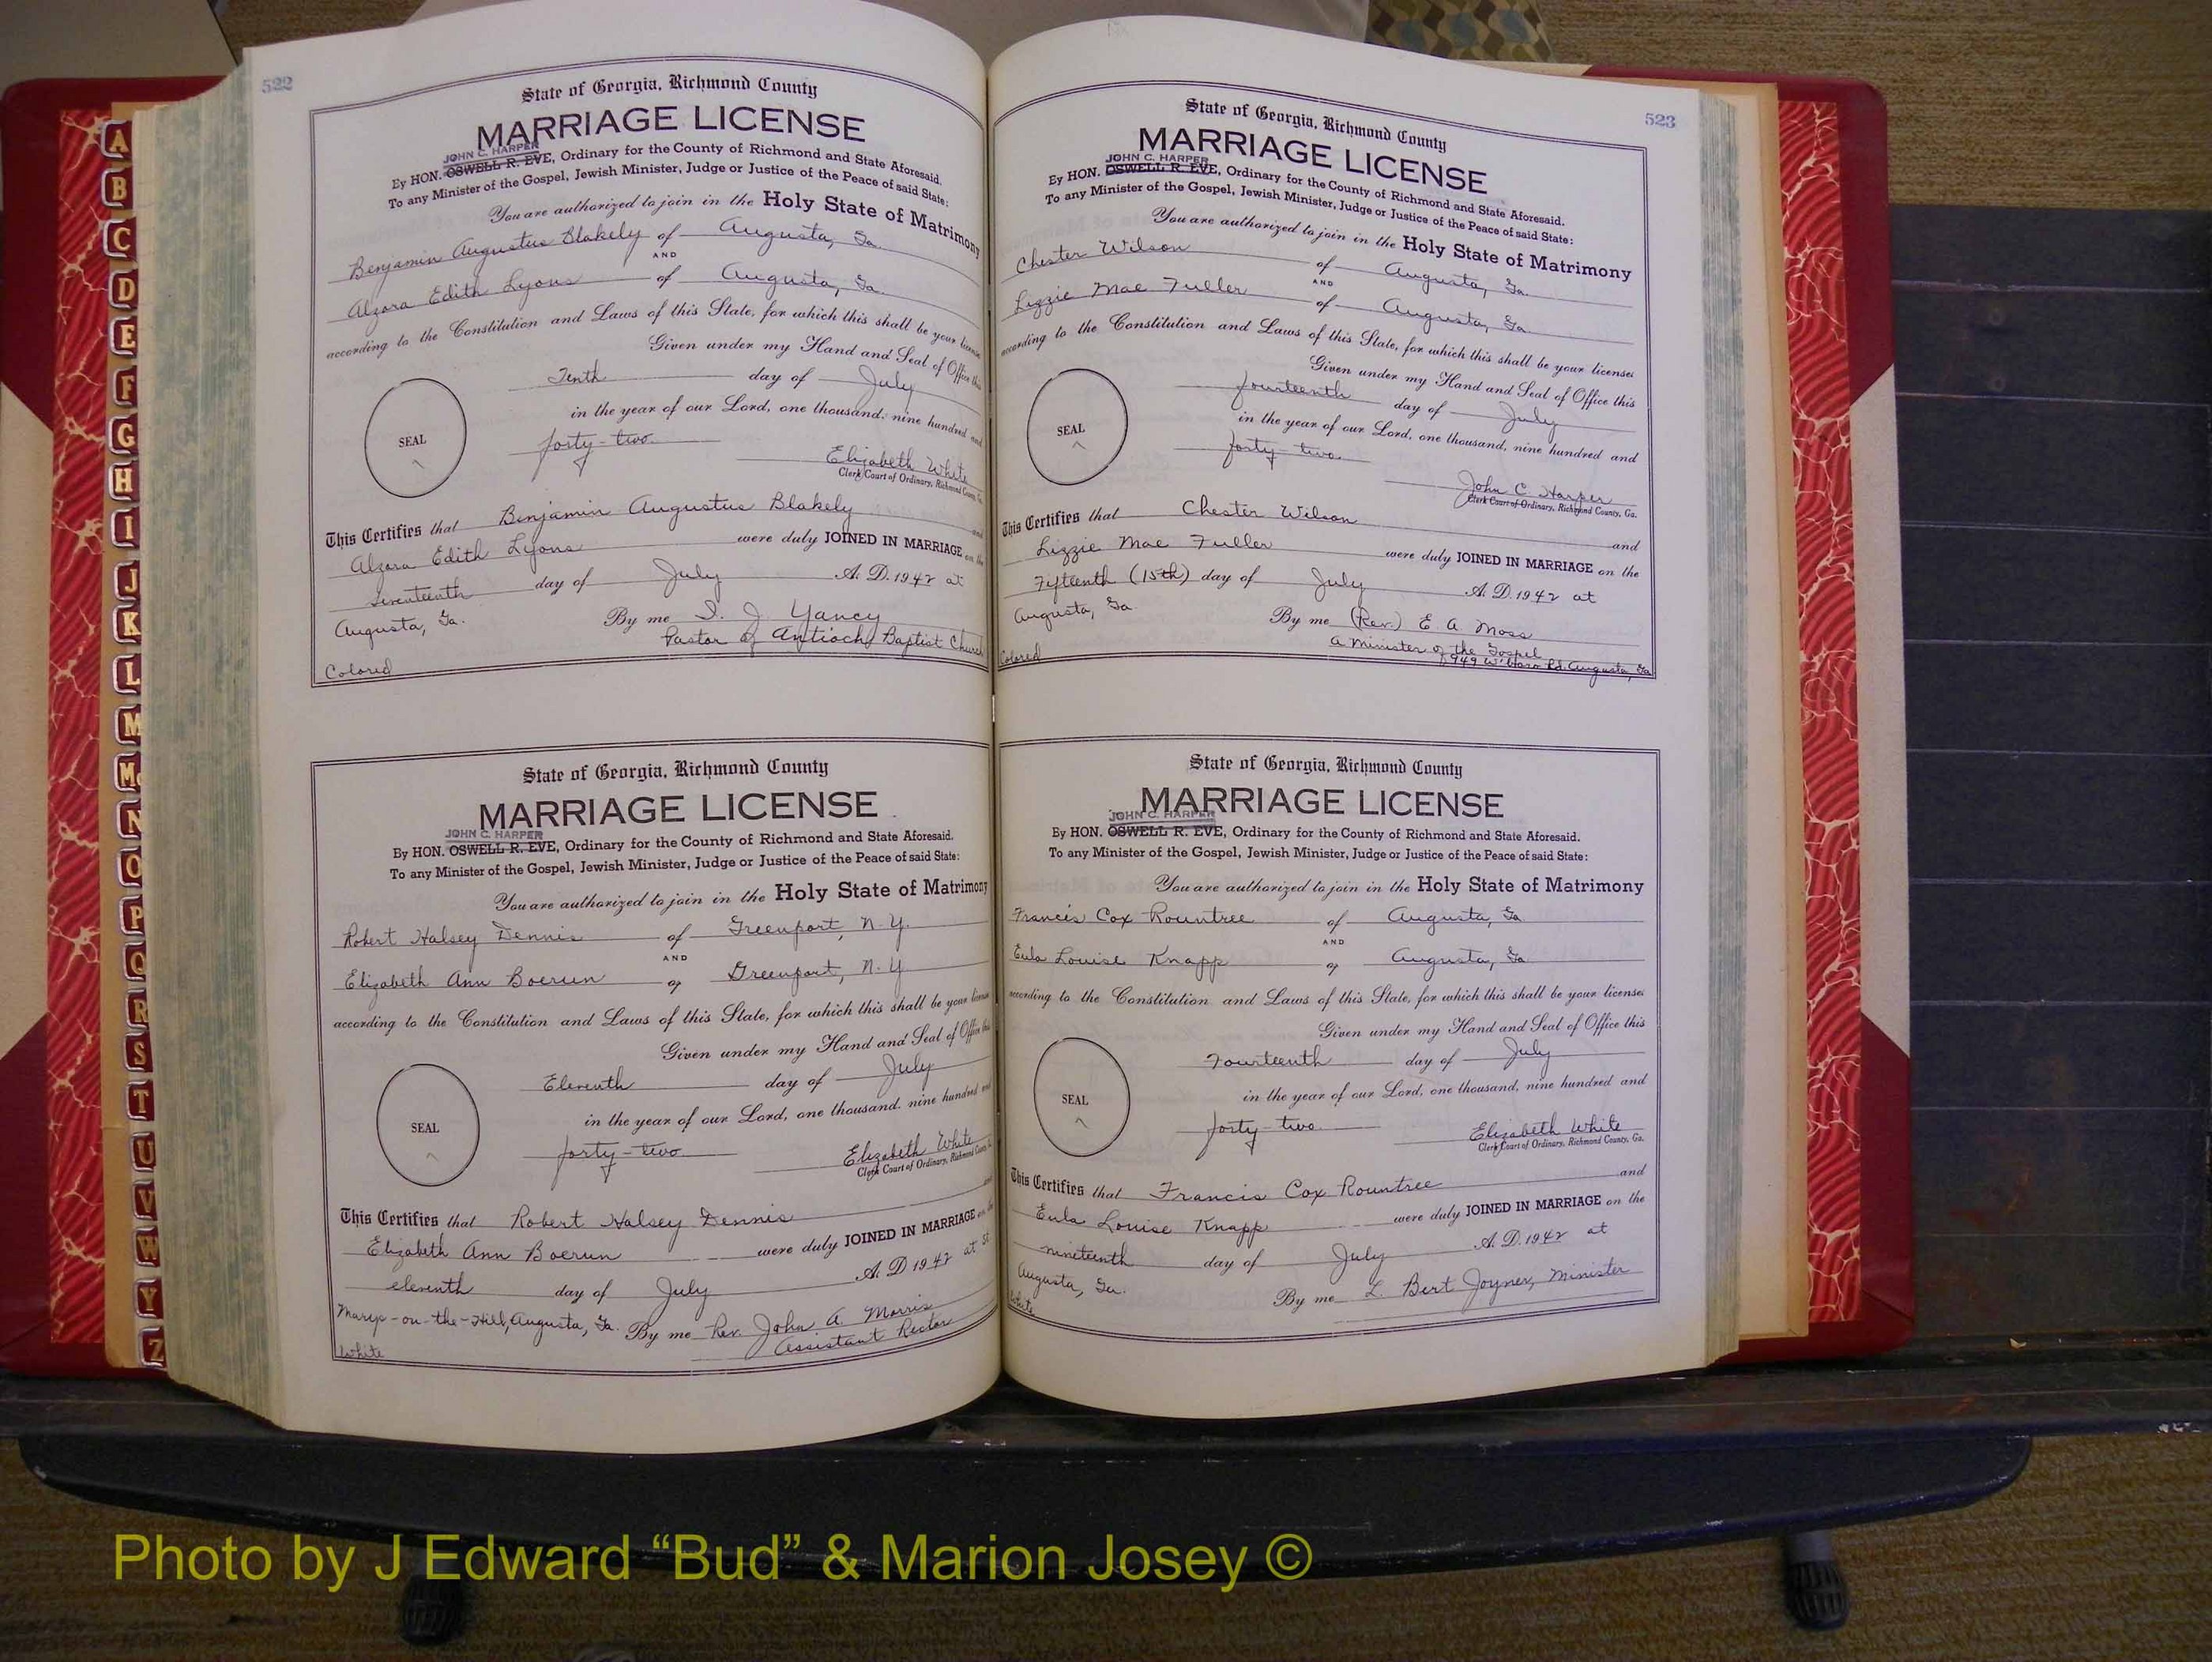 522
State of Georgia, Richmond County
MARRIAGE LICENSE
JOHN C. HARPER
By HON. OSWELL R. EVE, Ordinary for the County of Richmond and State Aforesaid.
To any Minister of the Gospel, Jewish Minister, Judge or Justice of the Peace of said State:
You are authorized to join in the Holy State of Matrimony
Benjamin Augustus Blakely of Augusta, Ga.
AND
Alzora Edith Lyons of Augusta, Ga.
according to the Constitution and Laws of this State, for which this shall be your license
Given under my Hand and Seal of Office this
Tenth day of July
in the year of our Lord, one thousand, nine hundred and
SEAL
forty-two
Elizabeth White
Clerk Court of Ordinary, Richmond County, Ga.
This Certifies that Benjamin Augustus Blakely and
Alzora Edith Lyons were duly JOINED IN MARRIAGE on the
Seventeenth day of July A. D. 1942 at
Augusta, Ga. By me I. J. Yancy
Pastor of Antioch Baptist Church
Colored
State of Georgia, Richmond County
MARRIAGE LICENSE
JOHN C. HARPER
By HON. OSWELL R. EVE, Ordinary for the County of Richmond and State Aforesaid.
To any Minister of the Gospel, Jewish Minister, Judge or Justice of the Peace of said State:
You are authorized to join in the Holy State of Matrimony
Robert Halsey Dennis of Greenport, N.Y.
AND
Elizabeth Ann Boerun of Greenport, N.Y
according to the Constitution and Laws of this State, for which this shall be your license
Given under my Hand and Seal of Office this
Eleventh day of July
in the year of our Lord, one thousand, nine hundred and
SEAL
forty-two
Elizabeth White
Clerk Court of Ordinary, Richmond County, Ga.
This Certifies that Robert Halsey Dennis and
Elizabeth Ann Boerun were duly JOINED IN MARRIAGE on the
eleventh day of July A. D. 1942 at St.
Marys-on-the-Hill, Augusta, Ga. By me Rev. John A. Morris
Assistant Rector
White
523
State of Georgia, Richmond County
MARRIAGE LICENSE
JOHN C. HARPER
By HON. OSWELL R. EVE, Ordinary for the County of Richmond and State Aforesaid.
To any Minister of the Gospel, Jewish Minister, Judge or Justice of the Peace of said State:
You are authorized to join in the Holy State of Matrimony
Chester Wilson of Augusta, Ga.
AND
Lizzie Mae Fuller of Augusta, Ga
according to the Constitution and Laws of this State, for which this shall be your license
Given under my Hand and Seal of Office this
fourteenth day of July
in the year of our Lord, one thousand, nine hundred and
SEAL
forty-two
John C Harper
Clerk Court of Ordinary, Richmond County, Ga.
This Certifies that Chester Wilson and
Lizzie Mae Fuller were duly JOINED IN MARRIAGE on the
Fifteenth (15th) day of July A. D. 1942 at
Augusta, Ga. By me (Rev.) E. A Moss
a Minister of the Gospel
Rd. Augusta, Ga
Colored
State of Georgia, Richmond County
MARRIAGE LICENSE
JOHN C. HARPER
By HON. OSWELL R. EVE, Ordinary for the County of Richmond and State Aforesaid.
To any Minister of the Gospel, Jewish Minister, Judge or Justice of the Peace of said State:
You are authorized to join in the Holy State of Matrimony
Francis Cox Rountree of Augusta, Ga
AND
Eula Louise Knapp of Augusta, Ga
according to the Constitution and Laws of this State, for which this shall be your license
Given under my Hand and Seal of Office this
Fourteenth day of July
in the year of our Lord, one thousand, nine hundred and
SEAL
forty-two
Elizabeth White
Clerk Court of Ordinary, Richmond County, Ga.
This Certifies that Francis Cox Rountree and
Eula Louise Knapp were duly JOINED IN MARRIAGE on the
nineteenth day of July A. D. 1942 at
Augusta, Ga. By me L. Bert Joyner, Minister
White
A
B
C
D
E
F
G
H
I
J
K
L
M
Mc
N
O
P
Q
R
S
T
U
V
W
Y
Z
Photo by J Edward “Bud” & Marion Josey ©